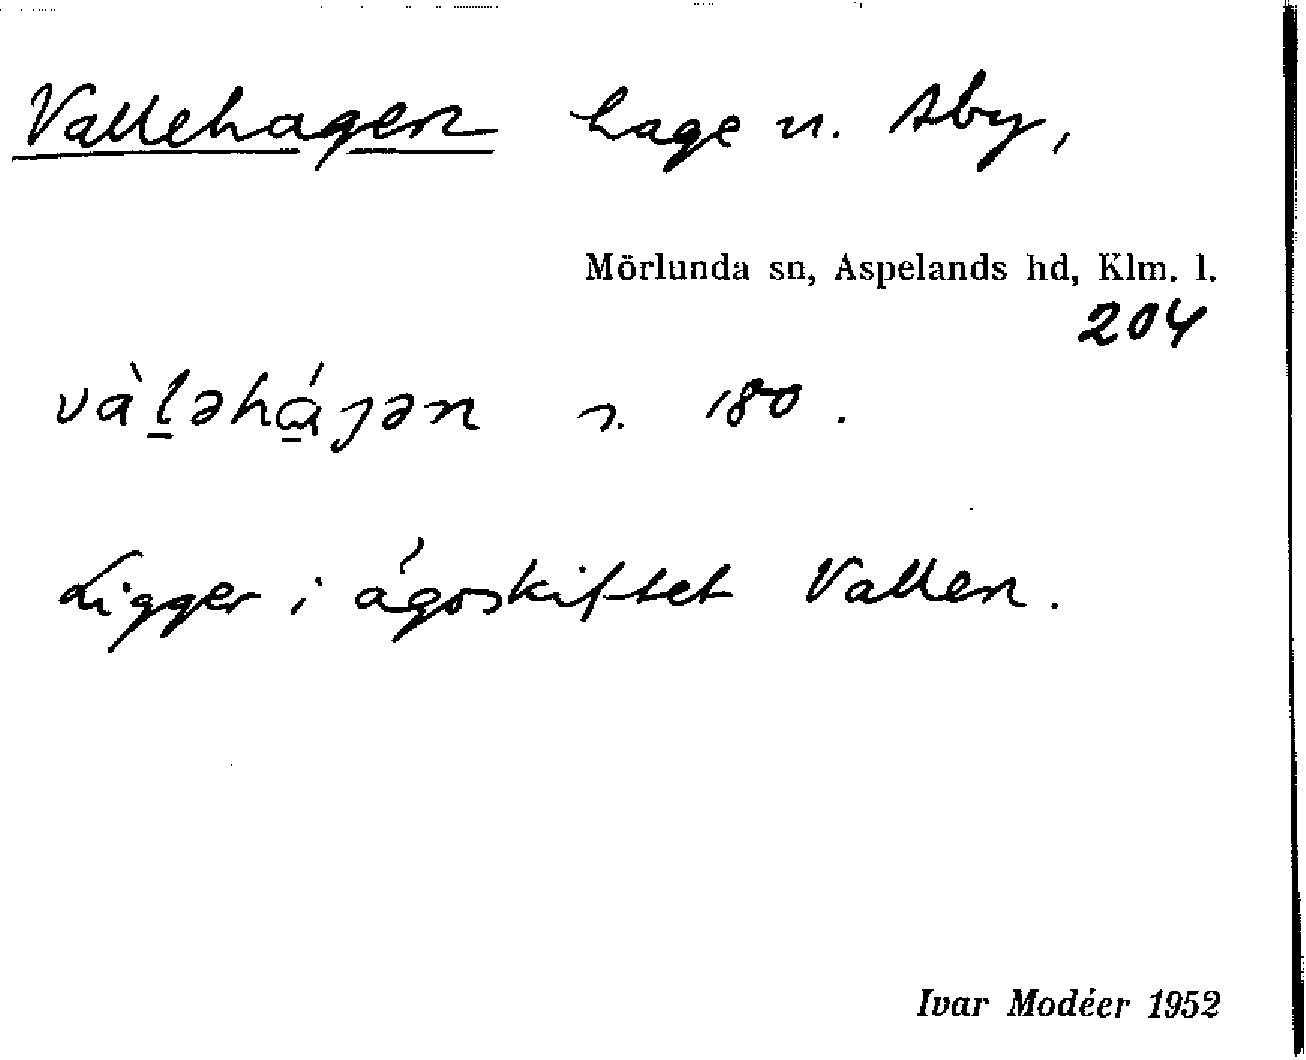 Vallehagen hage u. Aby,
Mörlunda sn, Aspelands hd, Klm. l.
204
và̀l̲əhɑ̲́ɟən s. 180.
Ligger i ägoskiftet Vallen.
Ivar Modéer 1952